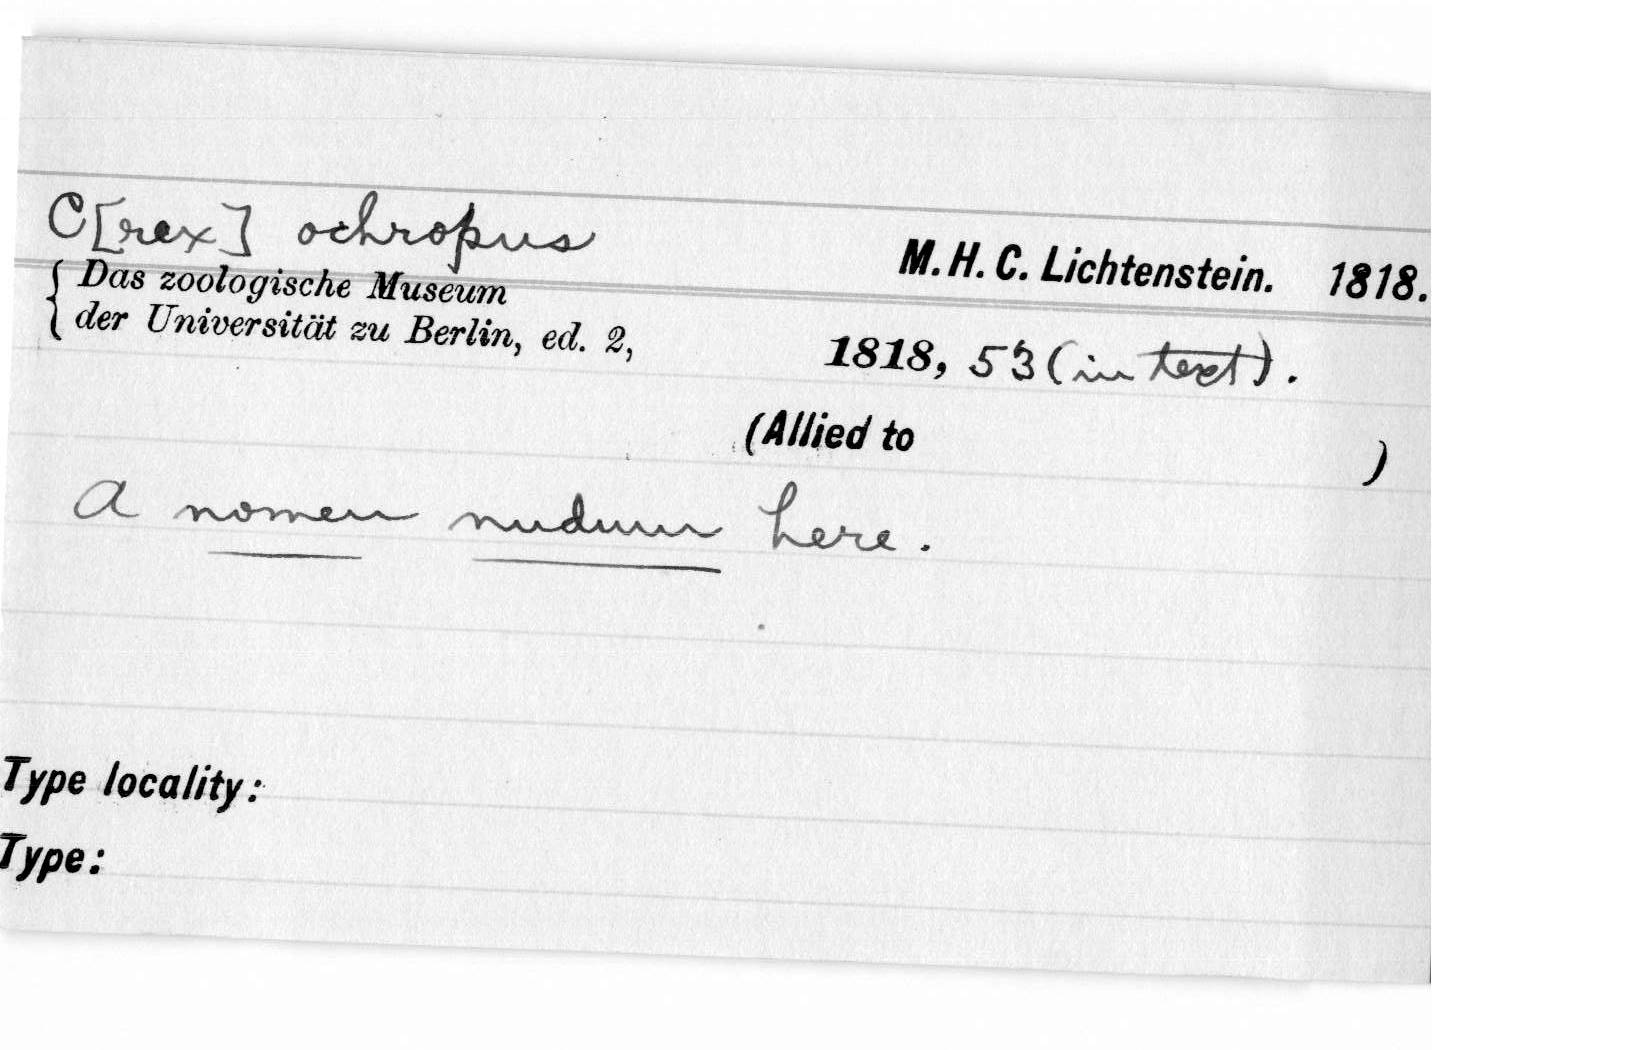 C[rex] ochropus
M. H. C. Lichtenstein. 1818.
{ Das zoologische Museum
der Universität zu Berlin, ed. 2,
1818, 53 (in text).
(Allied to )
A nomen nudum here.
Type locality:
Type: